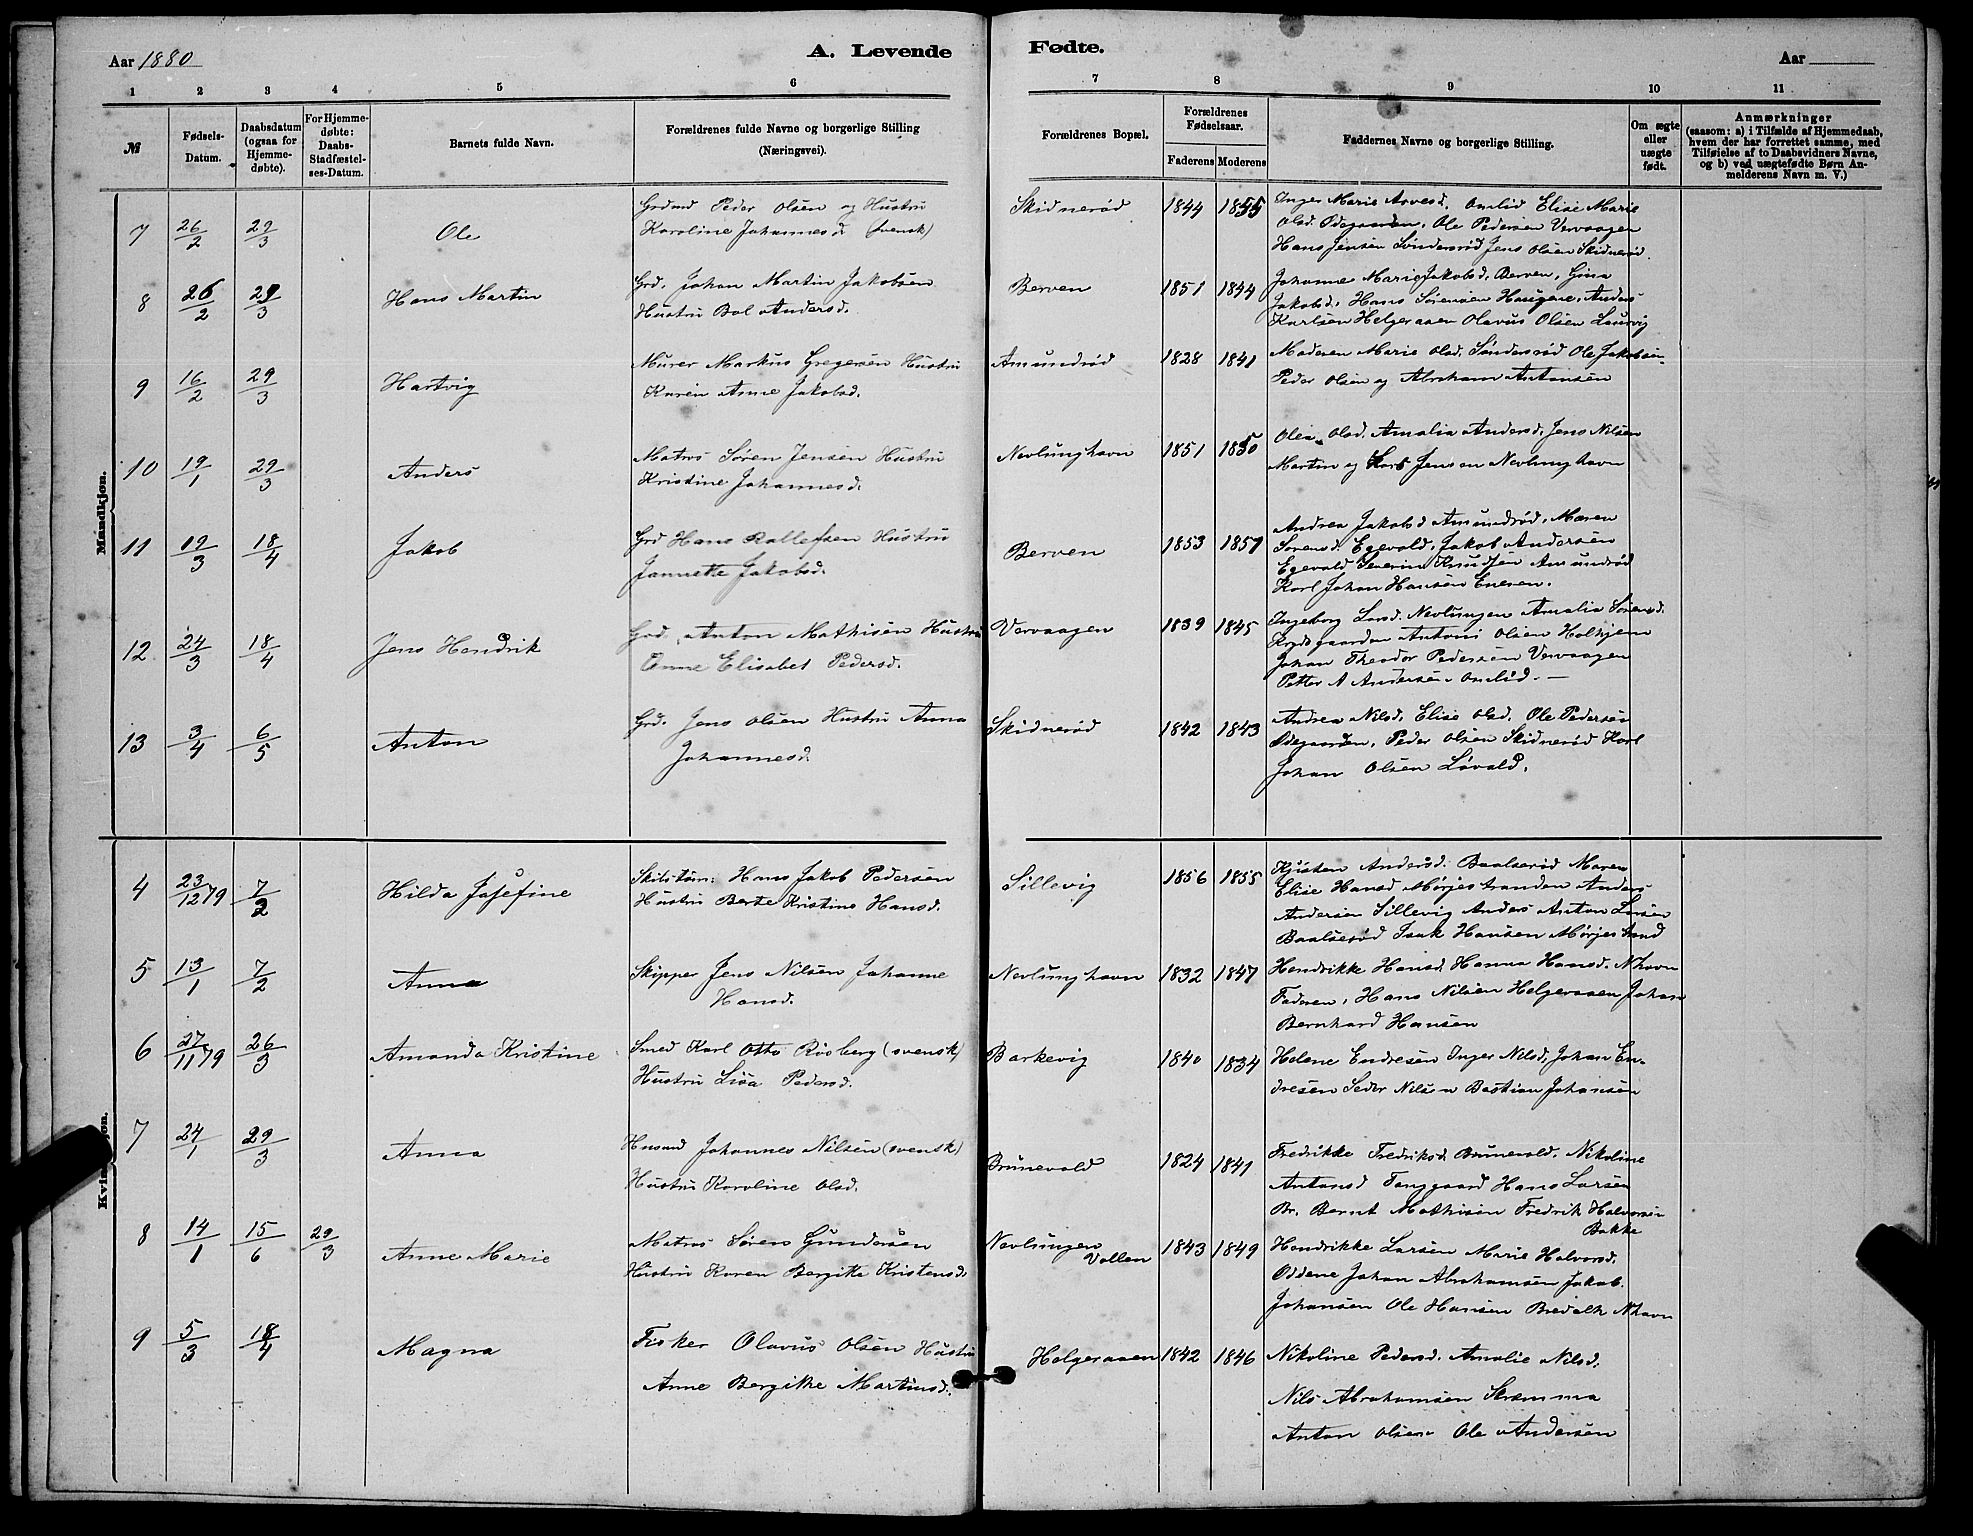 Aar 1880
A. Levende
Fødte.
Aar
1 2 3 4 5 6 7 8 9 10 11
№
Fødsels-
Datum.
Daabsdatum
(ogsaa for
Hjemme-
døbte).
For Hjemme-
døbte:
Daabs-
Stadfæstel-
ses-Datum.
Barnets fulde Navn.
Forældrenes fulde Navne og borgerlige Stilling
(Næringsvei).
Forældrenes Bopæl.
Forældrenes
Fødselsaar.
Faderens Moderens
Faddernes Navne og borgerlige Stilling.
Om ægte
eller
uægte
født.
Anmærkninger
(saasom: a) i Tilfælde af Hjemmedaab,
hvem der har forrettet samme, med
Tilføielse af to Daabsvidners Navne,
og b) ved uægtefødte Børn An-
melderens Navn m. V.)
Mandkjøn.
7 26/2 29/3 Ole
Grdmd Peder Olsen og Hustru
Karoline Johannesd. (svensk)
Skidnerød 1844 1855
Inger Marie Arvesd. Omlid Elise Marie
Olsd. Ødegaarden, Ole Pedersen Vervaagen
Hans Jensen Søndersrød Jens Olsen Skidnerød.
8 26/2 29/3 Hans Martin
Grd. Johan Martin Jakobsen
Hustru Bol Andersd.
Berven 1851 1844
Johanne Marie Jakobsd. Berven, Gina
Jakobsd. Hans Sørensen Haugene, Anders
Karlsen Helgeraaen Olavus Olsen Laurvig
9 16/2 29/3 Hartvig
Murer Markus Gregersen Hustru
Karen Anne Jakobsd.
Amundrød 1828 1841
Moderen Marie Olsd. Søndersrød Ole Jakobsen
Peder Olsen og Abraham Antonsen
10 19/1 29/3 Anders
Matros Søren Jensen Hustru
Kristine Johannesd.
Nevlunghavn 1851 1850
Olea Olsd. Amalia Andersd. Jens Nilsen
Martin og Lars Jensen Nevlunghavn
11 19/3 18/4 Jakob
Grd Hans Rollefsen Hustru
Jannette Jakobsd.
Berven 1853 1857
Andrea Jakobsd Amundrød, Maren
Sørensd. Egevald, Jakob Andersen
Egevald Severin Knudsen Amundrød
Karl Johan Hansen Enesen.
12 24/3 18/4 Jens Hendrik
Grd. Anton Mathisen Hustru
Anne Elisabet Pedersd.
Vervaagen 1839 1845
Ingeborg Larsd. Nevlungen Amalia Sørensd.
Antoni Olsen Holhjem
Johan Theodor Pedersen Vervaagen
Petter A Andersen Omlid. —
13 3/4 6/5 Anton
Grd. Jens Olsen Hustru Anna
Johannesd
Skidnerød 1842 1843
Andrea Nilsd. Elise Olsd. Ole Pedersen
Ødegaarden, Peder Olsen Skidnerød Karl
Johan Olsen Løvald.
4 23/12 79 7/2 Hilda Josefine
Hans Jakob Pedersen
Hustru Berte Kristine Hansd.
Sillevig 1856 1855
Kjisten Andersd. Baalserød Maren
Elise Hansd Mørjestranden Anders
Andersen Sillevig Anders Anton Larsen
Baalserød Isak Hansen Mørjestrand
5 13/1 7/2 Anna
Skipper Jens Nilsen Johanne
Hansd.
Nevlunghavn 1832 1847
Hendrikke Hansd. Hanna Hansd. Nhavn
Faderen, Hans Nilsen Helgeraaen Johan
Bernhard Hansen
6 27/11 79 26/3 Amanda Kristine
Smed Karl Otto Rosberg (svensk)
Hustru Lisa Pedersd.
Barkevig 1840 1834
Helene Endresen Inger Nilsd. Johan En-
dresen Peder Nilsen Bastian Johansen
7 24/1 29/3 Anna
Husmd Johannes Nilsen (svensk)
Hustru Karoline Olsd.
Brunevald 1824 1841
Fredrikke Fredriksd Brunevald. Nikoline
Antonsd Fanggaard Hans Larsen
Br. Bernt Mathisen Fredrik Halvorsen
Bakke
8 14/1 15/6 29/3 Anne Marie
Matros Søren Gundersen
Hustru Karen Bergitte Kristensd.
Nevlungen
Vallen 1843 1849
Hendrikke Larsen Marie Halvorsd.
Oddene Johan Abrahamsen Jakob
Johansen Ole Hansen Nhavn
9 5/3 18/4 Magna
Fisker Olavus Olsen Hustru
Anne Bergitte Martinsd.
Helgeraaen 1842 1846
Nikoline Pedersd. Amalie Nilsd.
Nils Abrahamsen Skremma
Anton Olsen Ole Andersen